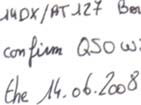 14DX/AT127 Ben
confirm QSO wi
the 14.06.2008